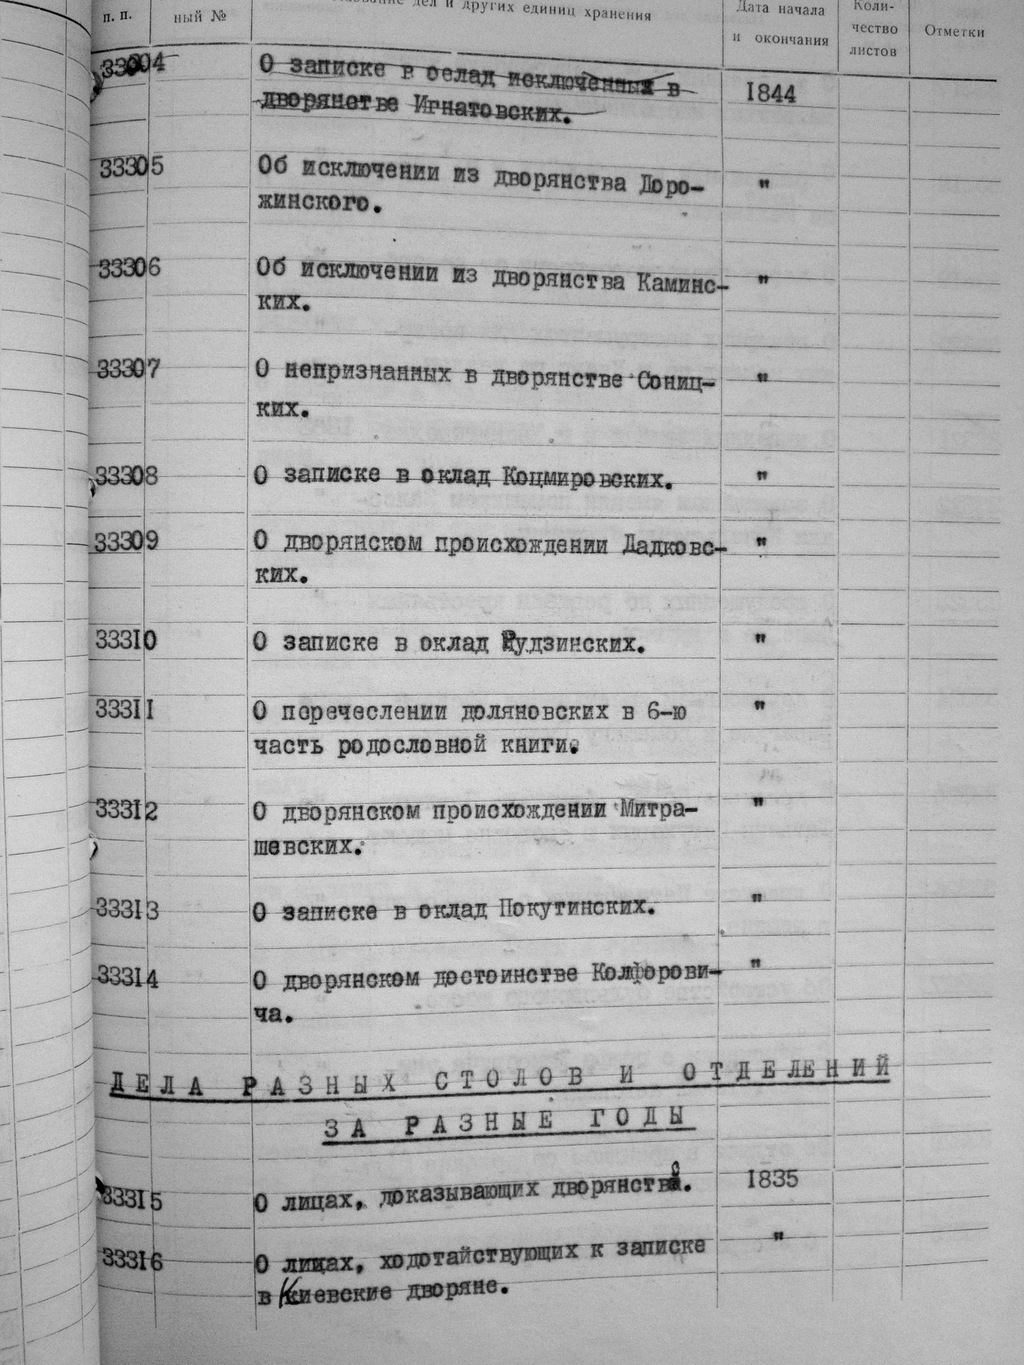 п. п.
ный №
дел и других единиц хранения
Дата начала
и окончания
Коли-
чество
листов
Отметки
33304 О записке в оклад исключенных в 1844
дворянстве Игнатовских.
33305 Об исключении из дворянства Доро- "
жинского.
33306 Об исключении из дворянства Каминс- "
ких.
33307 О непризнанных в дворянстве Сониц- "
ких.
33308 О записке в оклад Коцмировских. "
33309 О дворянском происхождении Дадковс- "
ких.
33310 О записке в оклад Рудзинских. "
33311 О перечеслении доляновских в 6-ю "
часть родословной книги.
33312 О дворянском происхождении Митра- "
шевских.
33313 О записке в оклад Покутинских. "
33314 О дворянском достоинстве Колфорови- "
ча.
ДЕЛА РАЗНЫХ СТОЛОВ И ОТДЕЛЕНИЙ
ЗА РАЗНЫЕ ГОДЫ
33315 О лицах, доказывающих дворянство. 1835
33316 О лицах, ходотайствующих к записке "
в Киевские дворяне.